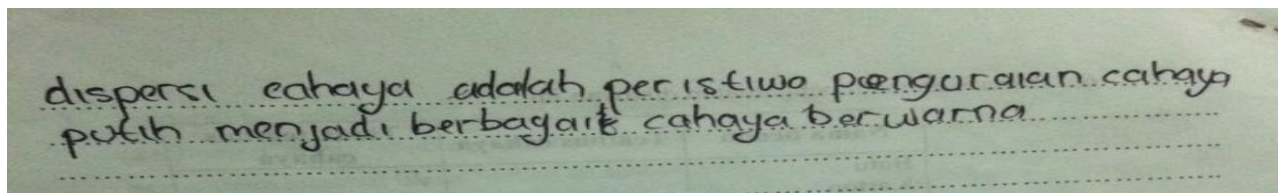 dispersi cahaya adalah peristiwa penguraian cahaya
putih menjadi berbagait cahaya berwarna